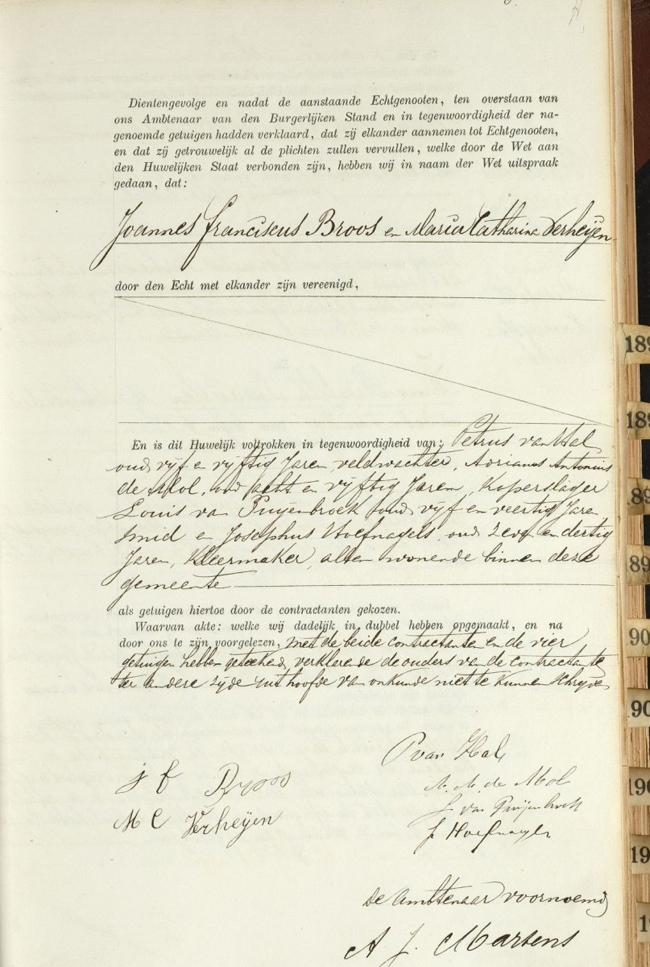 Dientengevolge en nadat de aanstaande Echtgenooten, ten overstaan van
ons Ambtenaar van den Burgerlijken Stand en in tegenwoordigheid der na-
genoemde getuigen hadden verklaard, dat zij elkander aannemen tot Echtgenooten,
en dat zij getrouwelijk al de plichten zullen vervullen, welke door de Wet aan
den Huwelijken Staat verbonden zijn, hebben wij in naam der Wet uitspraak
gedaan, dat:
Joannes Franciscus Broos en Maria Catharina Verheijen
door den Echt met elkander zijn vereenigd,
En is dit Huwelijk voltrokken in tegenwoordigheid van: Petrus van Hal
oud vijf en vijftig Jaren, veldwachter, Adrianus Antonius
de Mol, oud acht en vijftig Jaren, Koperslager
Louis van Puijenbroek oud vijf en veertig Jaren
smid en Josephus Hoefnagels, oud zeven en dertig
Jaren, Kleermaker, allen wonende binnen deze
gemeente
als getuigen hiertoe door de contractanten gekozen.
Waarvan akte: welke wij dadelijk in dubbel hebben opgemaakt, en na
door ons te zijn voorgelezen, met de beide contractanten en de vier
getuigen hebben geteekend, verklarende de ouders van de contractante
ter andere zijde uit hoofde van onkunde niet te kunnen schrijven
P van Hal
J F Broos
de Mol
M C Verheijen
J. van Puijenbroek
J Hoefnagels
De Ambtenaar voornoemd
A J. Martens
189
189
89
89
90
90
190
19
1